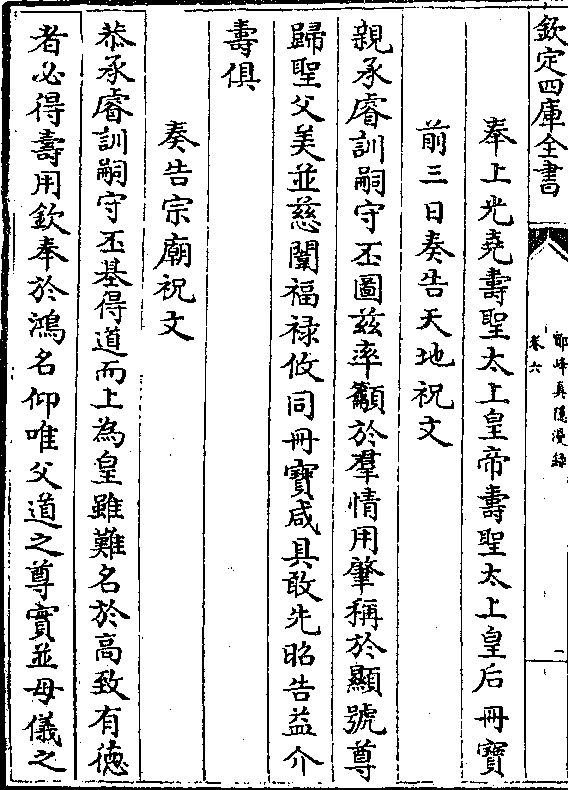 欽定四庫全書
鄮峰真隱漫錄
卷六
一
奉上光堯壽聖太上皇帝壽聖太上皇后冊寶
前三日奏告天地祝文
親承睿訓嗣守丕圖兹率籲於羣情用肇稱於顯號尊
歸聖父美並慈闈福禄攸同冊寶咸具敢先昭告益介
壽俱
奏告宗廟祝文
恭承睿訓嗣守丕基得道而上為皇雖難名於高致有徳
者必得壽用欽奉於鴻名仰唯父道之尊實並母儀之